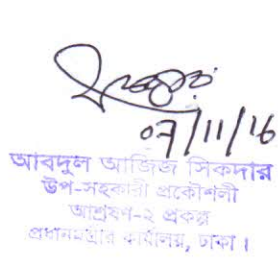 07/11/16
আবদুল আজিজ সিকদার
উপ-সহকারী প্রকৌশলী
আশ্রয়ণ-২ প্রকল্প
প্রধানমন্ত্রীর কার্যালয়, ঢাকা।